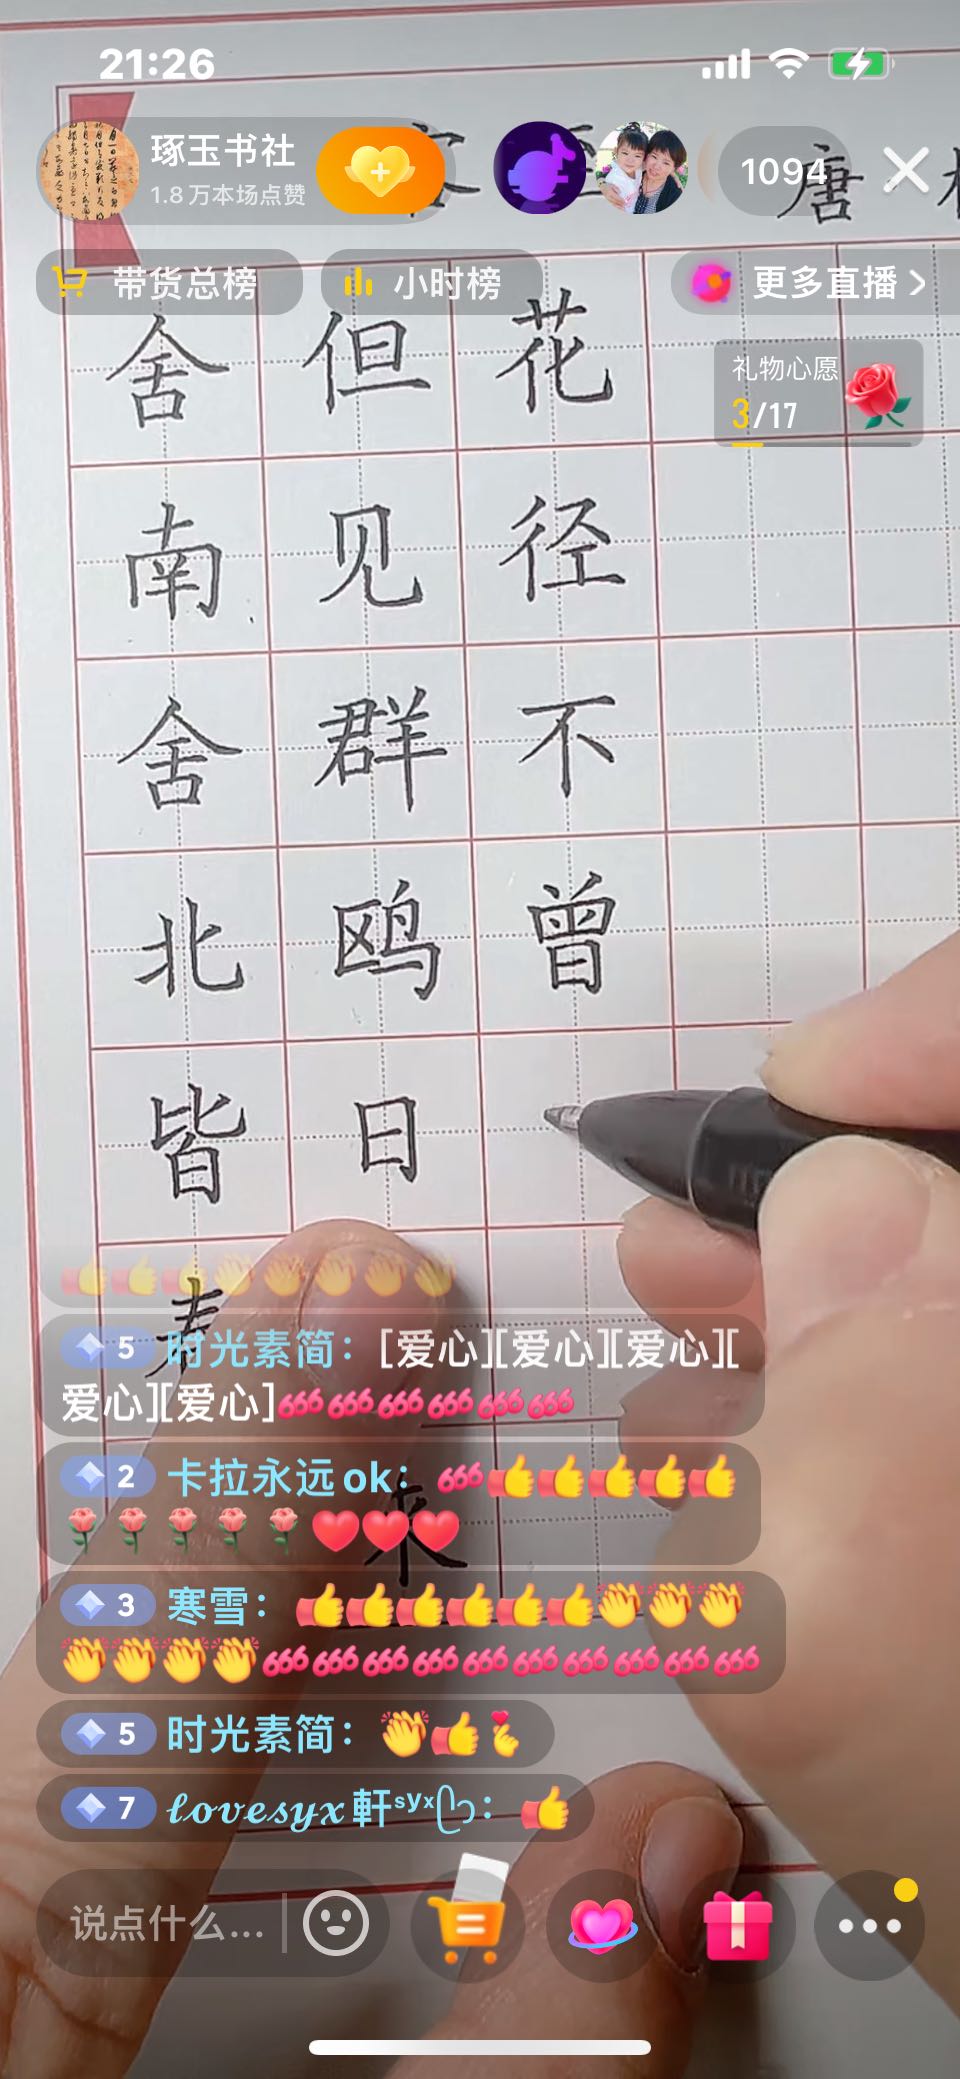 21:26
琢玉书社
1.8万本场点赞
1094
唐
带货总榜
小时榜
更多直播
礼物心愿
3/17
舍南舍北皆春
但见群鸥日
来
花径不曾
5 时光素简：[爱心][爱心][爱心][
爱心][爱心]666 666 666 666 666 666
2 卡拉永远ok：666👍👍👍👍👍
🌹🌹🌹🌹🌹❤️❤️❤️
3 寒雪：👍👍👍👍👍👍👏👏👏
👏👏👏👏666 666 666 666 666 666 666 666 666 666
5 时光素简：👏👍🫰
7 lovesyx軒ˢʸˣ：👍
说点什么...